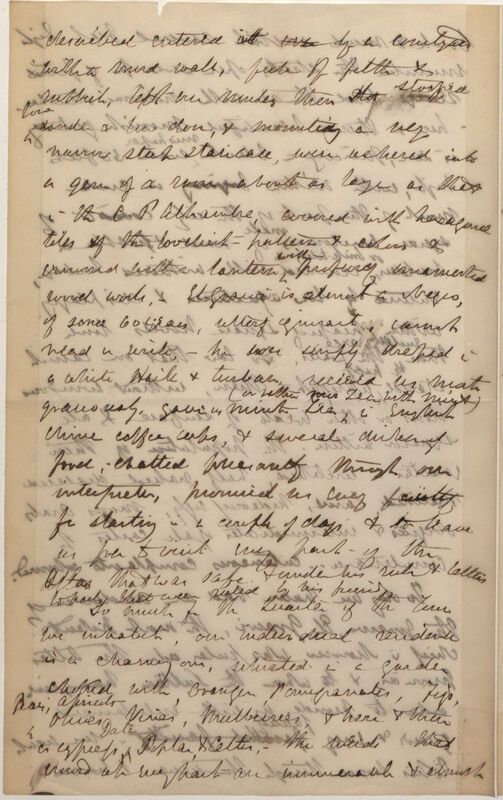 described entered by a courtyard
with a mud wall, full of filth &
rubbish, left our mules, then stooped
under a low door, & mounting a very
narrow steep staircase, were ushered into
a gem of a room about as large as those
in the C. P. Alhambra, covered with hexagonal
tiles of the loveliest pattern & colors &
crowned with lantern, with profusely ornamented
wood work, El Graoui is almost a Negro,
of some 60 years, utterly ignorant, cannot
read or write, he was simply dressed in
a white Haik & turban, received us most
graciously, gave us mint tea, (or rather green Tea with mint) in English
china coffee cups, & several dishes of
food, chatted pleasantly through our
interpreter, promised us every facility
for starting in a couple of days & to leave
us free to visit every part of the
Atlas that was safe & under his rule & letters
to parts that were ruled by his friends
So much for the Quarter of the Town
we inhabit, our individual residence
is a charming one, situated in a garden
choked with Oranges Pomegranates, figs,
Pears, Apricots
Olives Vines, Mulberries, & here & there
a cypress, Date Poplar & Celtis, the weeds that
crowd up every part are innumerable & almost